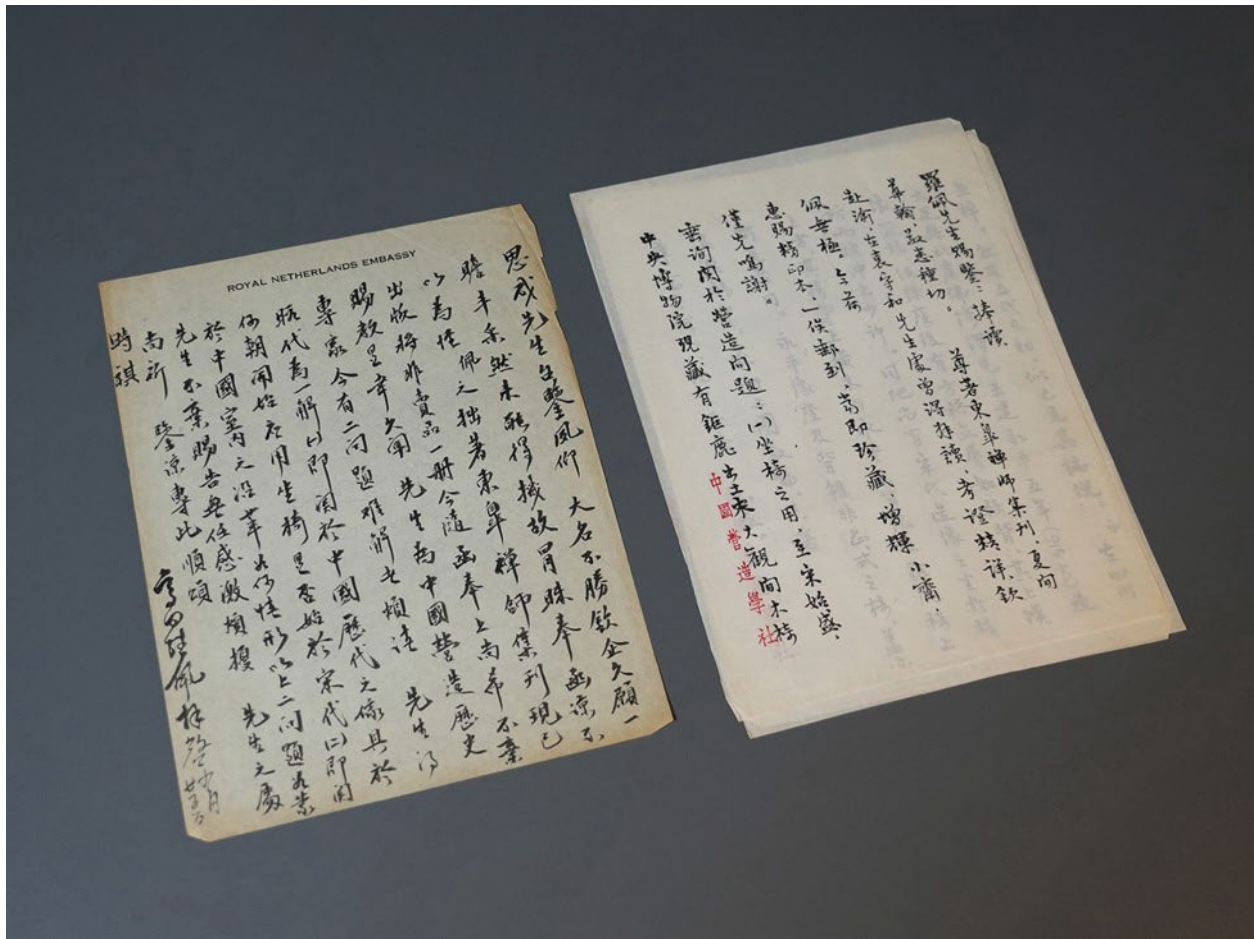 ROYAL NETHERLANDS EMBASSY
思成先生台鑒夙仰 大名不勝欽企久願一
瞻丰采然未能得機故冒昧奉 函諒不
以為怪佩之拙著東皋禪師集刊現已
出版將非賣品一册今隨函奉上尚希不棄
賜教是幸久聞 先生為中國營造歷史
專家今有二问題难解者煩請 先生
賜代為一解(一)即関於中國歷代之傢具於
何朝開始应用坐椅是否始於宋代(二)即関
於中國室内之沿革如何情形以上二问題若蒙
先生不棄賜告無任感激煩擾 先生之處
尚祈 鑒凉專此順頌
時祺
高羅佩拜啓
羅佩先生賜鑒：捧讀
華翰，敬悉種切。 尊著東皋禪師集刊，夏间
赴渝，在袁守和先生處曾得拜讀，考證精詳，欽
佩無極。今荷
惠賜精印本，一俟郵到，當即珍藏，增輝小齋，
僅先鳴謝。
垂询関於營造问題：(一)坐椅之用，至宋始盛，
中央博物院現藏有鉅鹿出土宋大觀间木椅
中國營造學社